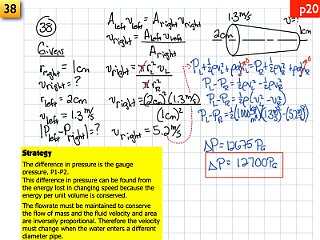 38
p20
38
Givens
r right = 1cm
v right = ?
r left = 2cm
v left = 1.3 m/s
|P left - P right| = ?
A left v left = A right v right
v right = A left v left / A right
v right = π r L² v L / π r R²
v right = (2cm)²(1.3 m/s) / (1cm)²
v right = 5.2 m/s
1.3 m/s
v = ?
2cm
1cm
P L + ½ρv L² + ρgy L = P R + ½ρv R² + ρgy R
P L - P R = ½ρv R² - ½ρv L²
ΔP = 12675 Pa
ΔP = 12700 Pa
Strategy
The difference in pressure is the gauge
pressure, P1-P2.
This difference in pressure can be found from
the energy lost in changing speed because the
energy per unit volume is conserved.
The flowrate must be maintained to conserve
the flow of mass and the fluid velocity and area
are inversely proportional. Therefore the velocity
must change when the water enters a different
diameter pipe.